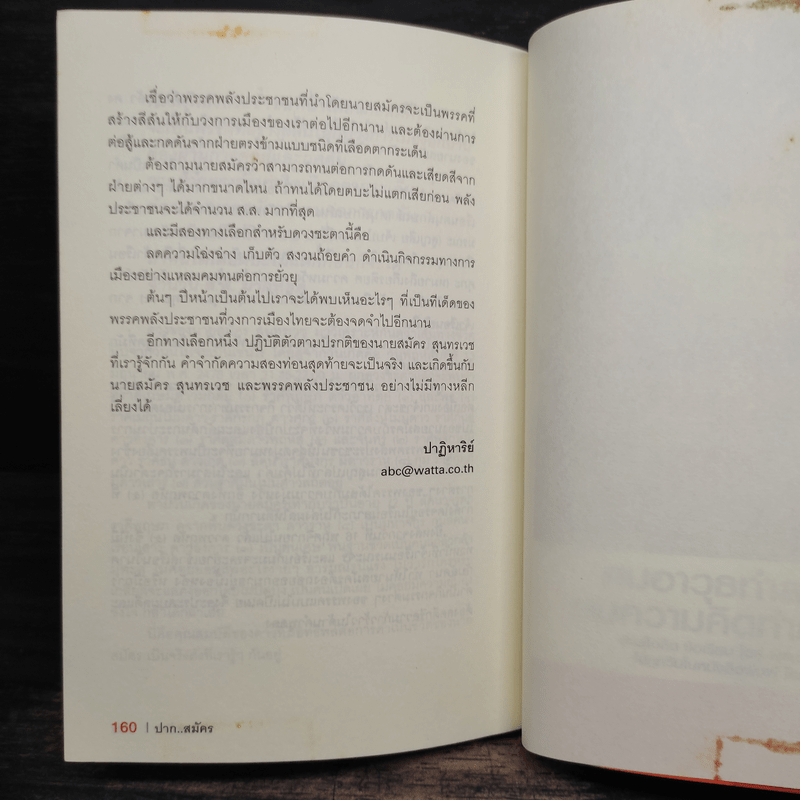 เชื่อว่าพรรคพลังประชาชนที่นำโดยนายสมัครจะเป็นพรรคที่
สร้างสีสันให้กับวงการเมืองของเราต่อไปอีกนาน และต้องผ่านการ
ต่อสู้และกดดันจากฝ่ายตรงข้ามแบบชนิดที่เลือดตากระเด็น
ต้องถามนายสมัครว่าสามารถทนต่อการกดดันและเสียดสีจาก
ฝ่ายต่างๆ ได้มากขนาดไหน ถ้าทนได้โดยตบะไม่แตกเสียก่อน พลัง
ประชาชนจะได้จำนวน ส.ส. มากที่สุด
และมีสองทางเลือกสำหรับดวงชะตานี้คือ
ลดความโฉ่งฉ่าง เก็บตัว สงวนถ้อยคำ ดำเนินกิจกรรมทางการ
เมืองอย่างแหลมคมทนต่อการยั่วยุ
ต้นๆ ปีหน้าเป็นต้นไปเราจะได้พบเห็นอะไรๆ ที่เป็นทีเด็ดของ
พรรคพลังประชาชนที่วงการเมืองไทยจะต้องจดจำไปอีกนาน
อีกทางเลือกหนึ่ง ปฏิบัติตัวตามปรกติของนายสมัคร สุนทรเวช
ที่เรารู้จักกัน คำจำกัดความสองท่อนสุดท้ายจะเป็นจริง และเกิดขึ้นกับ
นายสมัคร สุนทรเวช และพรรคพลังประชาชน อย่างไม่มีทางหลีก
เลี่ยงได้
ปาฏิหาริย์
abc@watta.co.th
160 | ปาก..สมัคร